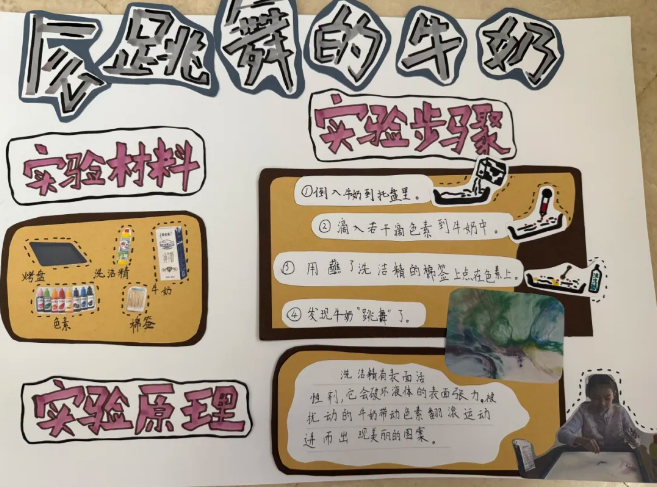 会跳舞的牛奶
实验材料
烤盘
洗洁精
牛奶
色素
棉签
实验步骤
①倒入牛奶到托盘里。
②滴入若干滴色素到牛奶中。
③用蘸了洗洁精的棉签上点在色素上。
④发现牛奶“跳舞”了。
实验原理
洗洁精有表面活
性剂,它会破坏液体的表面张力,被
扰动的牛奶带动色素翻滚运动
进而出现美丽的图案。